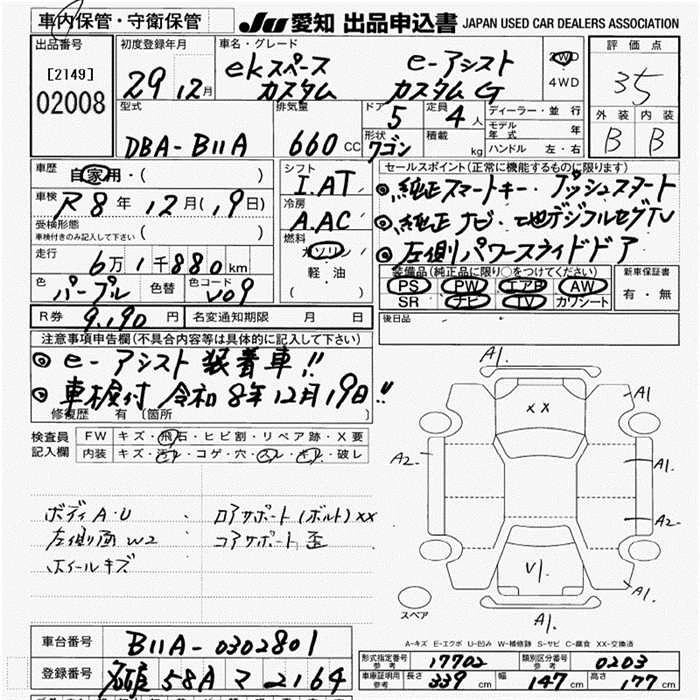 車内保管・守衛保管
JU 愛知 出品申込書 JAPAN USED CAR DEALERS ASSOCIATION
出品番号
[2149]
02008
初度登録年月
29 12月
車名・グレード
ekスペース e-アシスト
カスタム カスタムG
2WD
・
4WD
評価点
35
外装 内装
B B
型式
DBA-B11A
排気量
660 CC
ドア
5
定員
4人
形状
ワゴン
積載
kg
ディーラー・並行
モデル年式 年
ハンドル 左・右
車歴
自家用・( )
車検
R8年12月(19日)
受検形態
車検付きのみ記入して下さい ( )
走行
6万1千880km
色
パープル
色替
色コード
V09
シフト
I.AT
冷房
A.AC
燃料
ガソリン
軽・油
( )
セールスポイント(正常に機能するものに限ります)
◎純正スマートキー・プッシュスタート
◎純正ナビ・地デジフルセグTV
◎左側パワースライドドア
装備品(純正品に限り○をつけてください)
PS PW エアB AW
SR ナビ TV カワシート
新車保証書
有・無
後日品
R券 9,190円
名変通知期限 月 日
注意事項申告欄(不具合内容等は具体的に記入して下さい)
◎e-アシスト装着車!!
◎車検付 令和8年12月19日!!
修復歴 有(箇所 )
検査員
記入欄
FW キズ・飛石・ヒビ割・リペア跡・X要
内装 キズ・汚れ・コゲ・穴・スレ・キレ・破レ
ボディA・U
左側面W2
ホイールキズ
ロアサポート(ボルト)XX
コアサポート歪
A1.
XX
A1
A2.
A1.
A2
V1.
A1.
A1.
スペア
A-キズ E-エクボ U-凹み W-補修跡 S-サビ C-腐食 XX-交換済
車台番号
B11A-0302801
登録番号
58A マ 2164
形式指定番号
参考
17702
類別区分番号
参考
0203
車検証記載
参考
長さ 339cm
幅 147cm
高さ 177cm